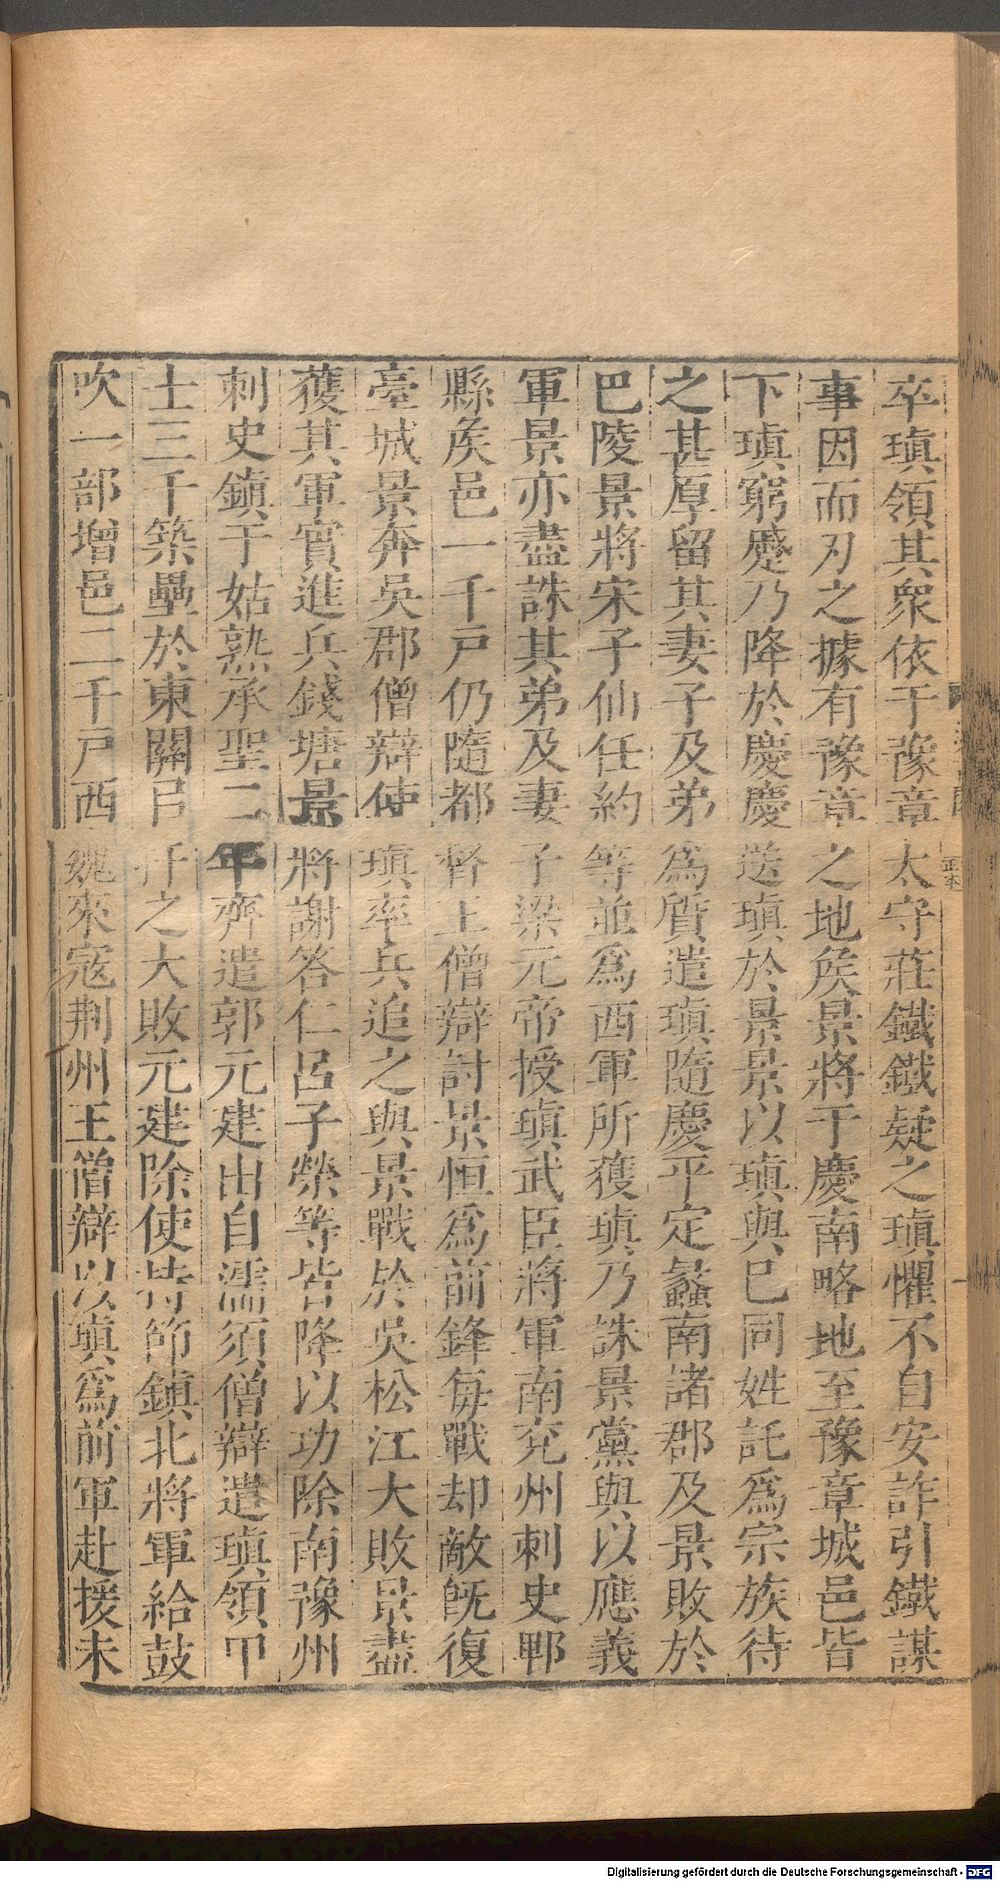 卒瑱領其衆依于豫章太守莊鐵鐵疑之瑱懼不自安詐引鐵謀
事因而刃之據有豫章之地矦景將于慶南略地至豫章城邑皆
下瑱窮蹙乃降於慶慶送瑱於景景以瑱與已同姓託爲宗族待
之甚厚留其妻子及弟爲質遣瑱隨慶平定蠡南諸郡及景敗於
巴陵景將宋子仙任約等並爲西軍所獲瑱乃誅景黨與以應義
軍景亦盡誅其弟及妻子梁元帝授瑱武臣將軍南兖州刺史郫
縣矦邑一千戸仍隨都督王僧辯討景恒爲前鋒每戰却敵旣復
臺城景奔吳郡僧辯使瑱率兵追之與景戰於吳松江大敗景盡
獲其軍實進兵錢塘景將謝答仁呂子榮等皆降以功除南豫州
刺史鎮于姑熟承聖二年齊遣郭元建出自濡須僧辯遣瑱領甲
士三千築壘於東關以扞之大敗元建除使持節鎮北將軍給鼓
吹一部增邑二千戸西魏來寇荆州王僧辯以瑱爲前軍赴援未
Digitalisierung gefördert durch die Deutsche Forschungsgemeinschaft - DFG